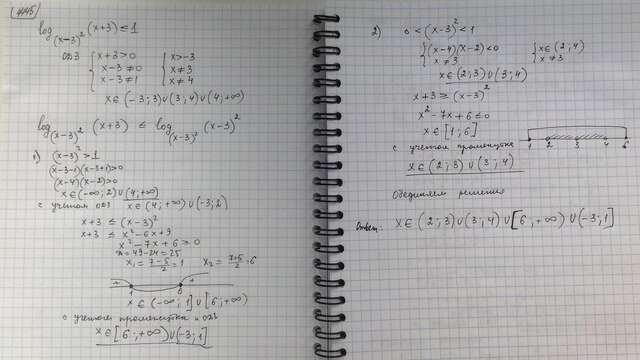 log₍ₓ₋₃₎² (x+3) ≤ 1
ОДЗ { x+3>0 { x>-3
x-3≠0 x≠3
x-3≠1 x≠4
x∈(-3;3)∪(3;4)∪(4;+∞)
log₍ₓ₋₃₎² (x+3) ≤ log₍ₓ₋₃₎² (x-3)²
1) (x-3)²>1
(x-3-1)(x-3+1)>0
(x-4)(x-2)>0
x∈(-∞;2)∪(4;+∞)
с учетом ОДЗ x∈(4;+∞)∪(-3;2)
x+3 ≤ (x-3)²
x+3 ≤ x²-6x+9
x²-7x+6 ≥ 0
D=49-24=25
x₁=(7-5)/2=1 x₂=(7+5)/2=6
+ - +
1 6
x∈(-∞;1]∪[6;+∞)
с учетом промежутка и ОДЗ
x∈[6;+∞)∪(-3;1]
2) 0<(x-3)²<1
{ (x-4)(x-2)<0 { x∈(2;4)
x≠3 x≠3
x∈(2;3)∪(3;4)
x+3 ≥ (x-3)²
x²-7x+6 ≤ 0
x∈[1;6]
с учетом промежутка
1 2 3 4 6
x∈(2;3)∪(3;4)
Объединяем решения
Ответ: x∈(2;3)∪(3;4)∪[6;+∞)∪(-3;1]